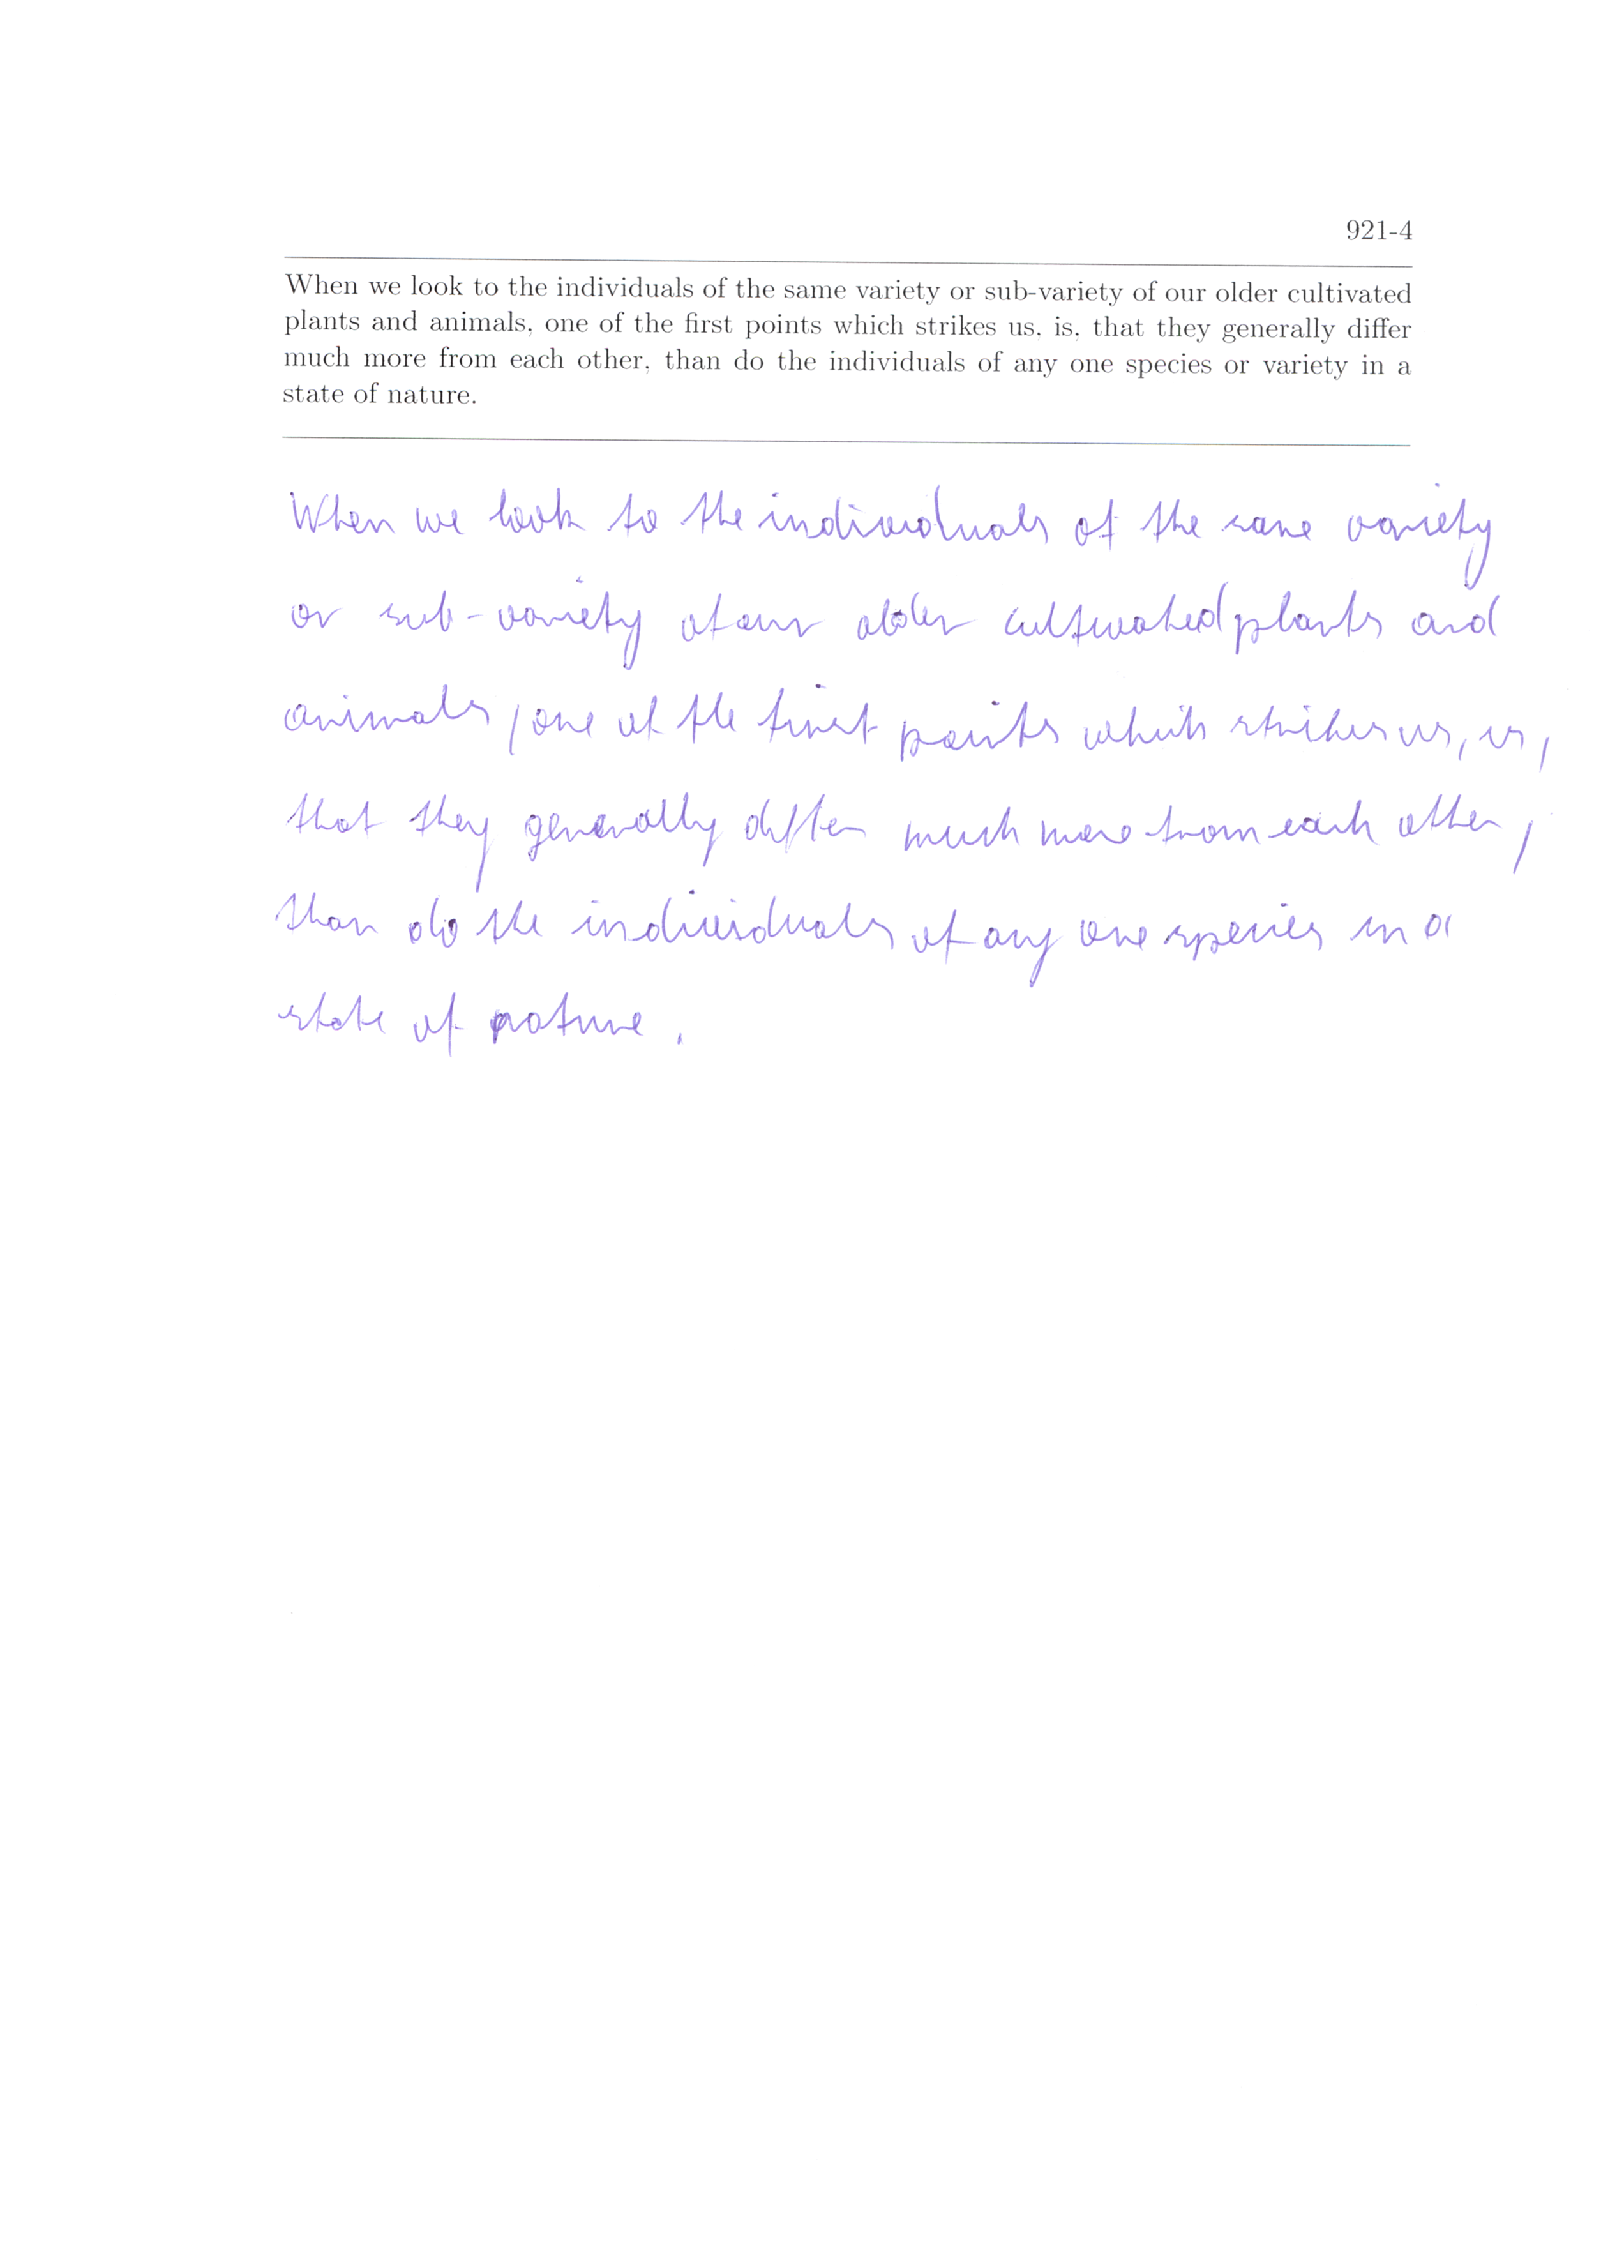 921-4
When we look to the individuals of the same variety or sub-variety of our older cultivated
plants and animals, one of the first points which strikes us, is, that they generally differ
much more from each other, than do the individuals of any one species or variety in a
state of nature.
When we look to the individuals of the same variety
or sub-variety of our older cultivated plants and
animals, one of the first points which strikes us, is,
that they generally differ much more from each other,
than do the individuals of any one species in a
state of nature.